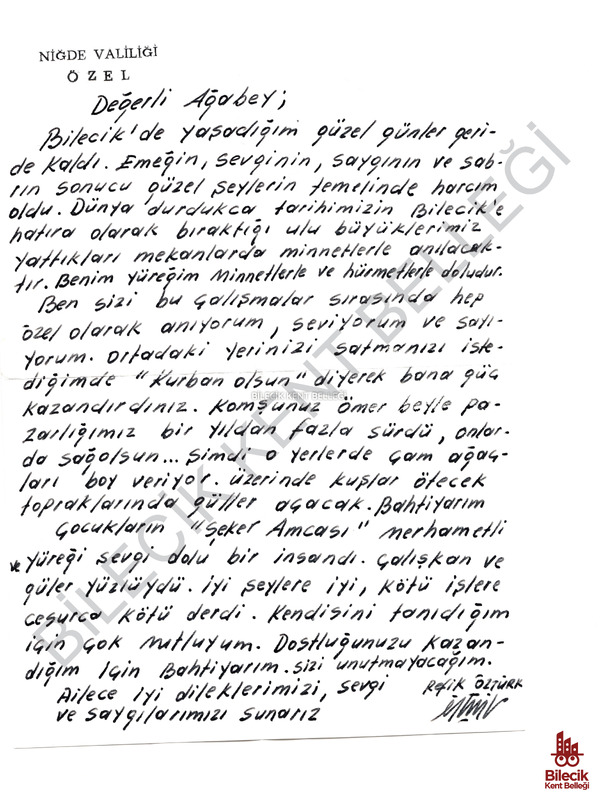 NİĞDE VALİLİĞİ
ÖZEL
Değerli Ağabey;
Bilecik'de yaşadığım güzel günler geri-
de kaldı. Emeğin, sevginin, saygının ve sab-
rın sonucu güzel şeylerin temelinde harcım
oldu. Dünya durdukca tarihimizin Bilecik'e
hatıra olarak bıraktığı ulu büyüklerimiz
yattıkları mekanlarda minnetlerle anılacak-
tır. Benim yüreğim minnetlerle ve hürmetlerle doludur.
Ben sizi bu çalışmalar sırasında hep
özel olarak anıyorum, seviyorum ve sayı-
yorum. Ortadaki yerinizi satmanızı iste-
diğimde "Kurban olsun" diyerek bana güç
kazandırdınız. Komşunuz Ömer beyle pa-
zarlığımız bir yıldan fazla sürdü, onlar-
da sağolsun... Şimdi o yerlerde çam ağaç-
ları boy veriyor. üzerinde kuşlar ötecek
topraklarında güller açacak. Bahtiyarım
Çocukların "Şeker Amcası" merhametli
ve yüreği sevgi dolu bir insandı. Çalışkan ve
güler yüzlüydü. iyi şeylere iyi, kötü işlere
cesurca kötü derdi. Kendisini tanıdığım
için çok mutluyum. Dostluğunuzu kazan-
dığım için Bahtiyarım. sizi unutmayacağım.
Ailece iyi dileklerimizi, sevgi
ve saygılarımızı sunarız
Refik ÖZTÜRK
BİLECİK KENT BELLEĞİ
BİLECİK KENT BELLEĞİ
Bilecik
Kent Belleği